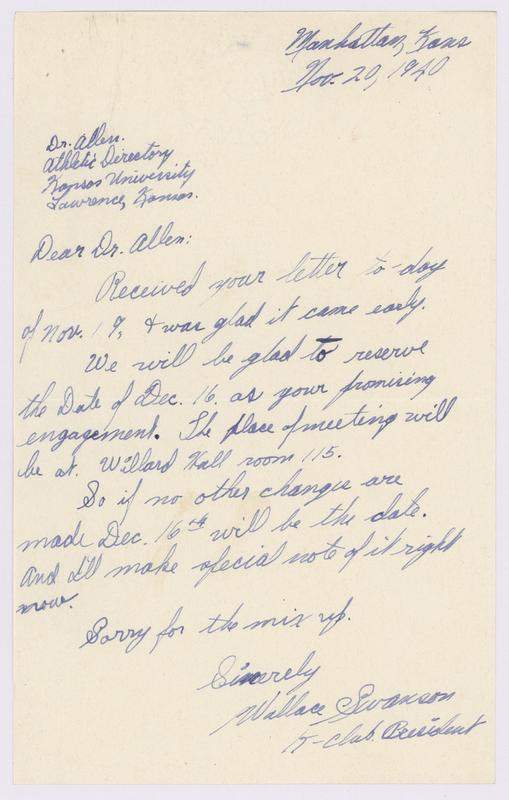 Manhattan, Kans
Nov. 20, 1940
Dr. Allen.
Athletic Directory
Kansas University
Lawrence, Kansas.
Dear Dr. Allen:
Received your letter to-day
of Nov. 19, & was glad it came early.
We will be glad to reserve
the Date of Dec. 16, as your promising
engagement. The place of meeting will
be at. Willard Hall room 115.
So if no other changes are
made Dec. 16th will be the date.
And I'll make special note of it right
now.
Sorry for the mix up.
Sincerely
Wallace Swanson
K-club. President